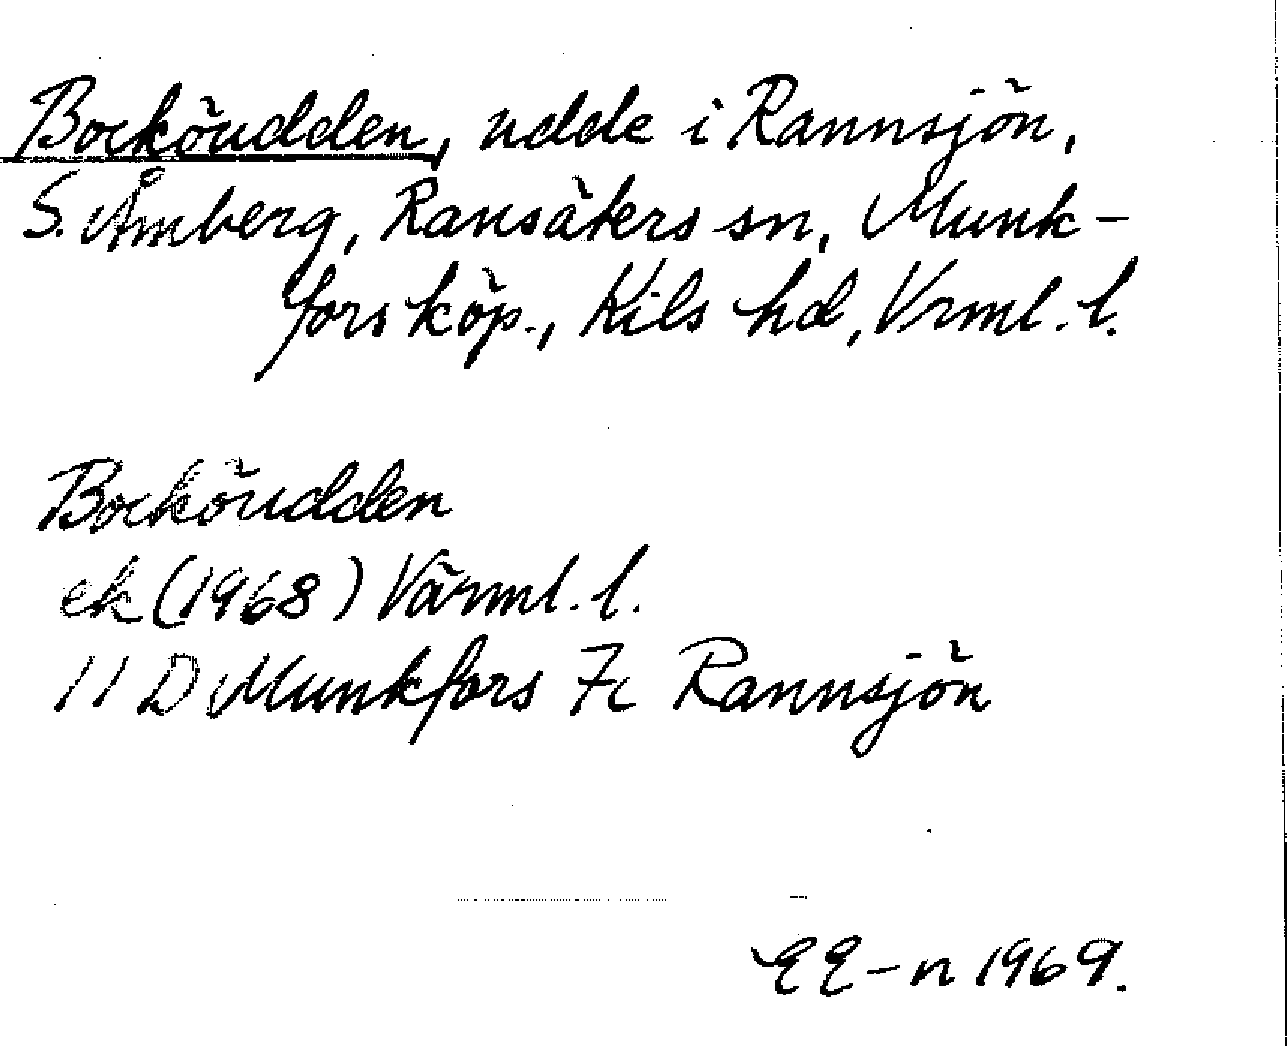 Bocköudden, udde i Rannsjön,
S. Åmberg, Ransäters sn, Munk-
fors köp., Kils hd, Vrml. l.
Bocköudden
ek (1968) Värml. l.
11 D Munkfors 7c Rannsjön
EE-n 1969.